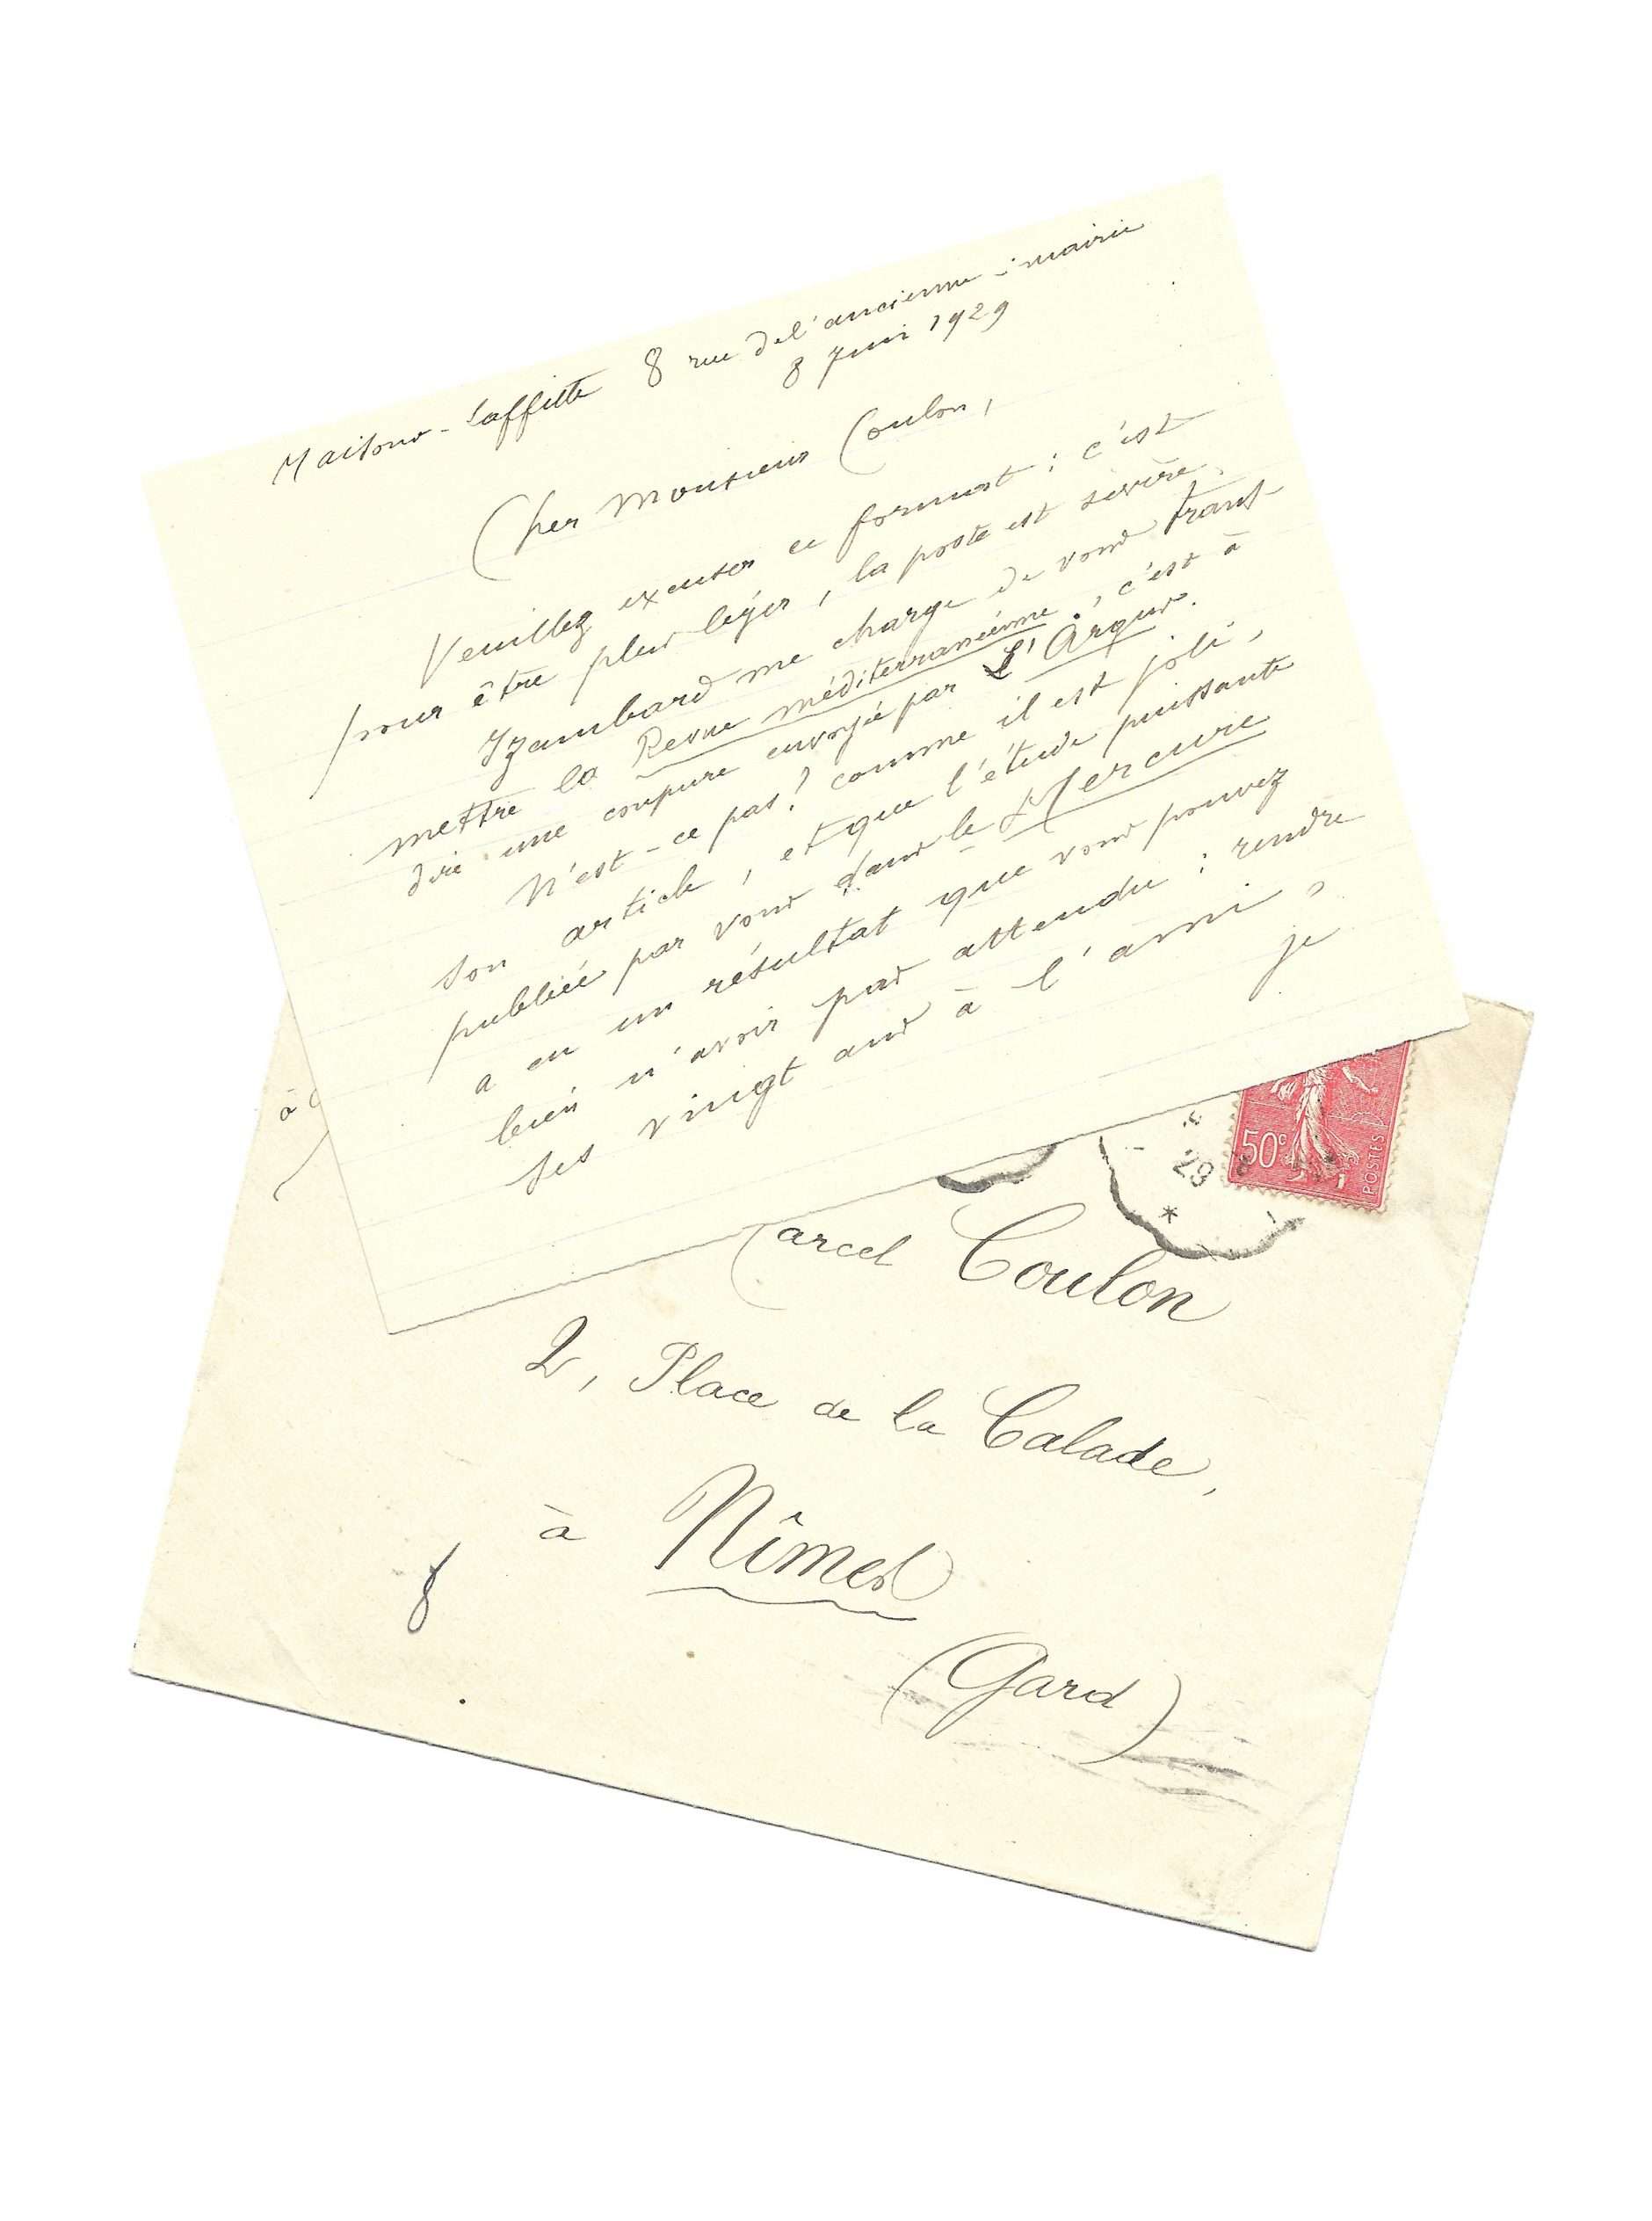 Maisons-Laffitte 8 rue de l'ancienne-mairie
8 Juin 1929
Cher Monsieur Coulon,
Veuillez excuser ce format : c'est
pour être plus léger, la poste est sévère.
Izambard me charge de vous trans-
mettre la Revue méditerranéenne, c'est à
dire une coupure envoyée par L'Argus.
N'est-ce pas ? comme il est joli,
son article, et que l'étude puissante
publiée par vous dans le Mercure
a eu un résultat que vous pouvez
bien n'avoir pas attendu : rendre
ses vingt ans à l'ami,
je
à
50c
POSTES
29
*
arcel Coulon
2, Place de la Calade,
à Nîmes
(Gard)
8